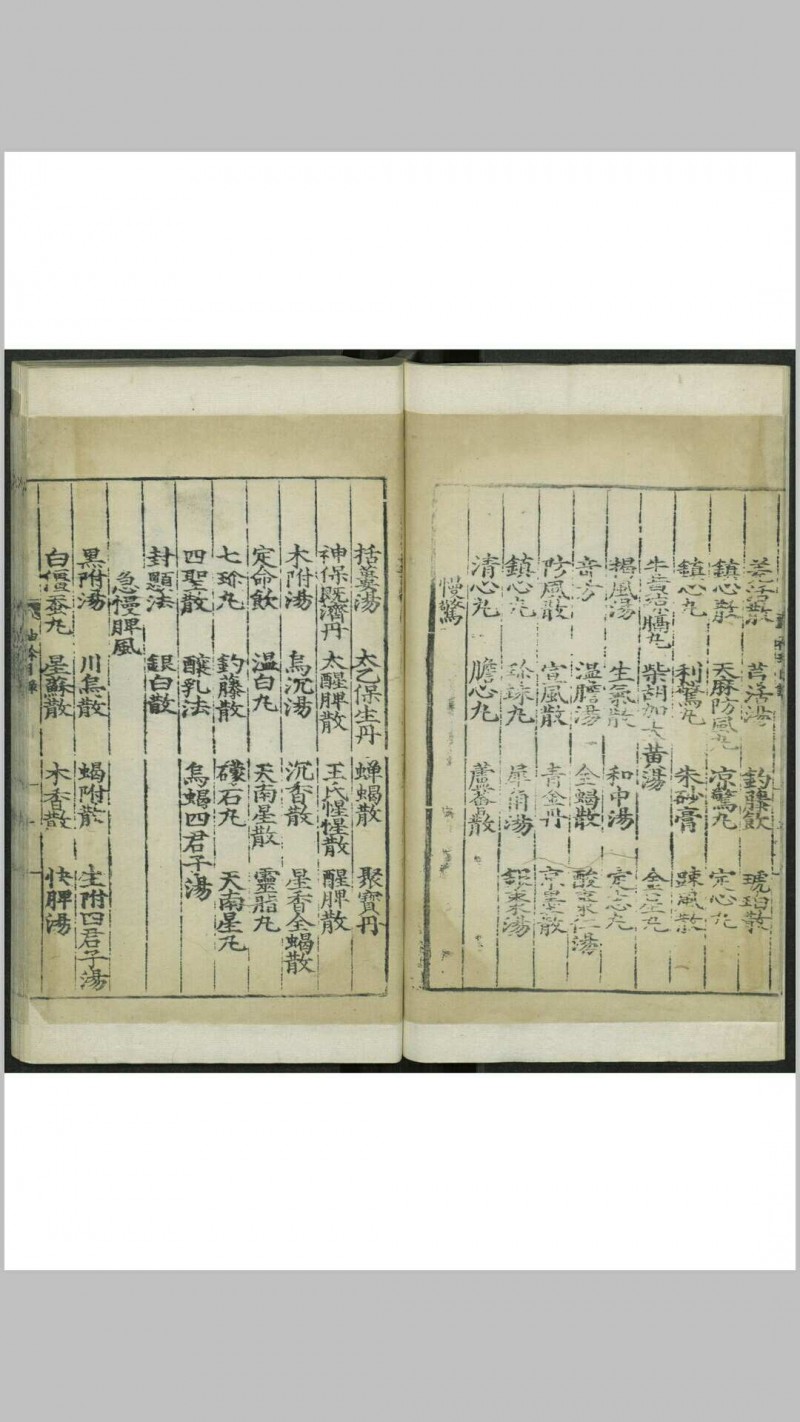 羌活散 芎活湯 釣藤飲 琥珀散
鎮心散 天麻防風丸 凉驚丸 定心丸
鎮心丸 利驚丸 朱砂膏 踈風散
牛黃凉膈丸 柴胡加大黃湯
揭風湯 生氣散 和中湯 定志丸
竒方 溫膽湯 全蝎散 酸棗仁湯
防風散 宣風散 青金丹 京墨散
鎮心丸 珍珠丸 犀角湯
清心丸 膽心丸 蘆薈散
慢驚
括蔞湯 太乙保生丹 蝉蝎散 聚寶丹
神保既濟丹 太醒脾散 王氏惺惺散 醒脾散
木附湯 烏沉湯 沉香散 星香全蝎散
定命飲 温白丸 天南星散 靈脂丸
七珍丸 釣藤散 礞石丸 天南星丸
四聖散 釀乳法 烏蝎四君子湯
封顖法 銀白散
急慢脾風
黑附湯 川烏散 蝎附散 生附四君子湯
白僵蚕丸 星蘇散 木香散 快脾湯